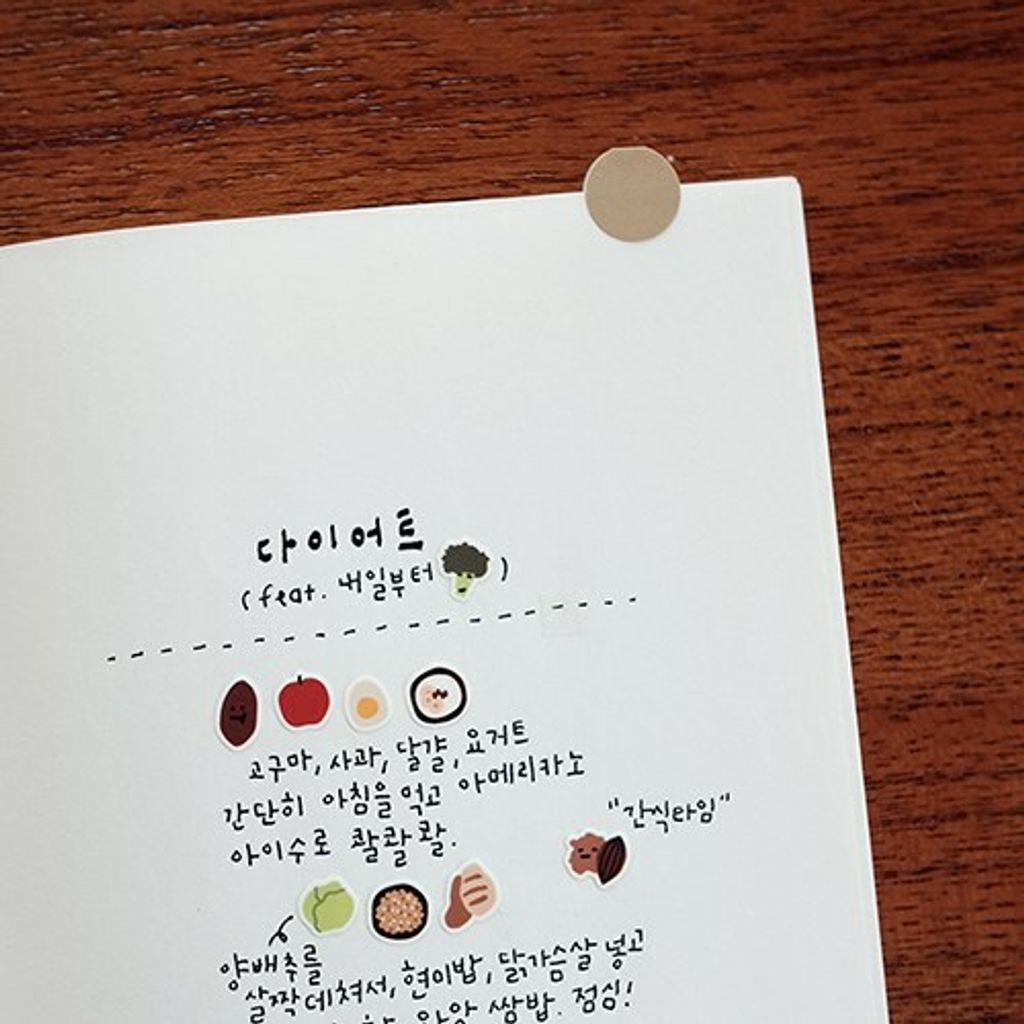 다이어트
(feat. 내일부터 )
고구마, 사과, 달걀, 요거트
간단히 아침을 먹고 아메리카노
아이수로 콸콸콸.
"간식타임"
양배추를
살짝 데쳐서, 현미밥, 닭가슴살 넣고
쌈밥. 점심!